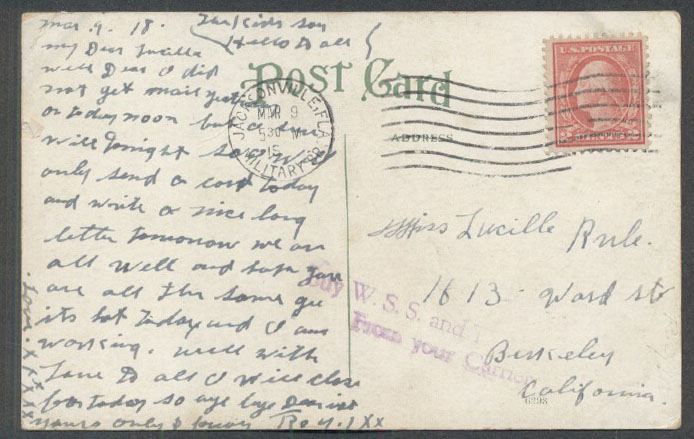 Mar. 9. 18.
The Kids say
Hello to all
My Dear Lucille
well Dear I did
not get mail yest
or today noon but
will tonight so will
only send a card today
and write a nice long
letter tomorrow we are
all well and hope you
are all the same gee
its hot today and I am
working. well with
Love to all I will close
for today so bye bye Dearest
yours only & forever Roy. 1XX
Love. XXX
XXXX
Post Card
ADDRESS
JACKSONVILLE, FLA.
MAR 9
5 30 M
MILITARY BR.
U.S. POSTAGE
Miss Lucille Rule.
1613 Ward St
Berkeley
California.
Buy W. S. S. and
From your Carrier
6298